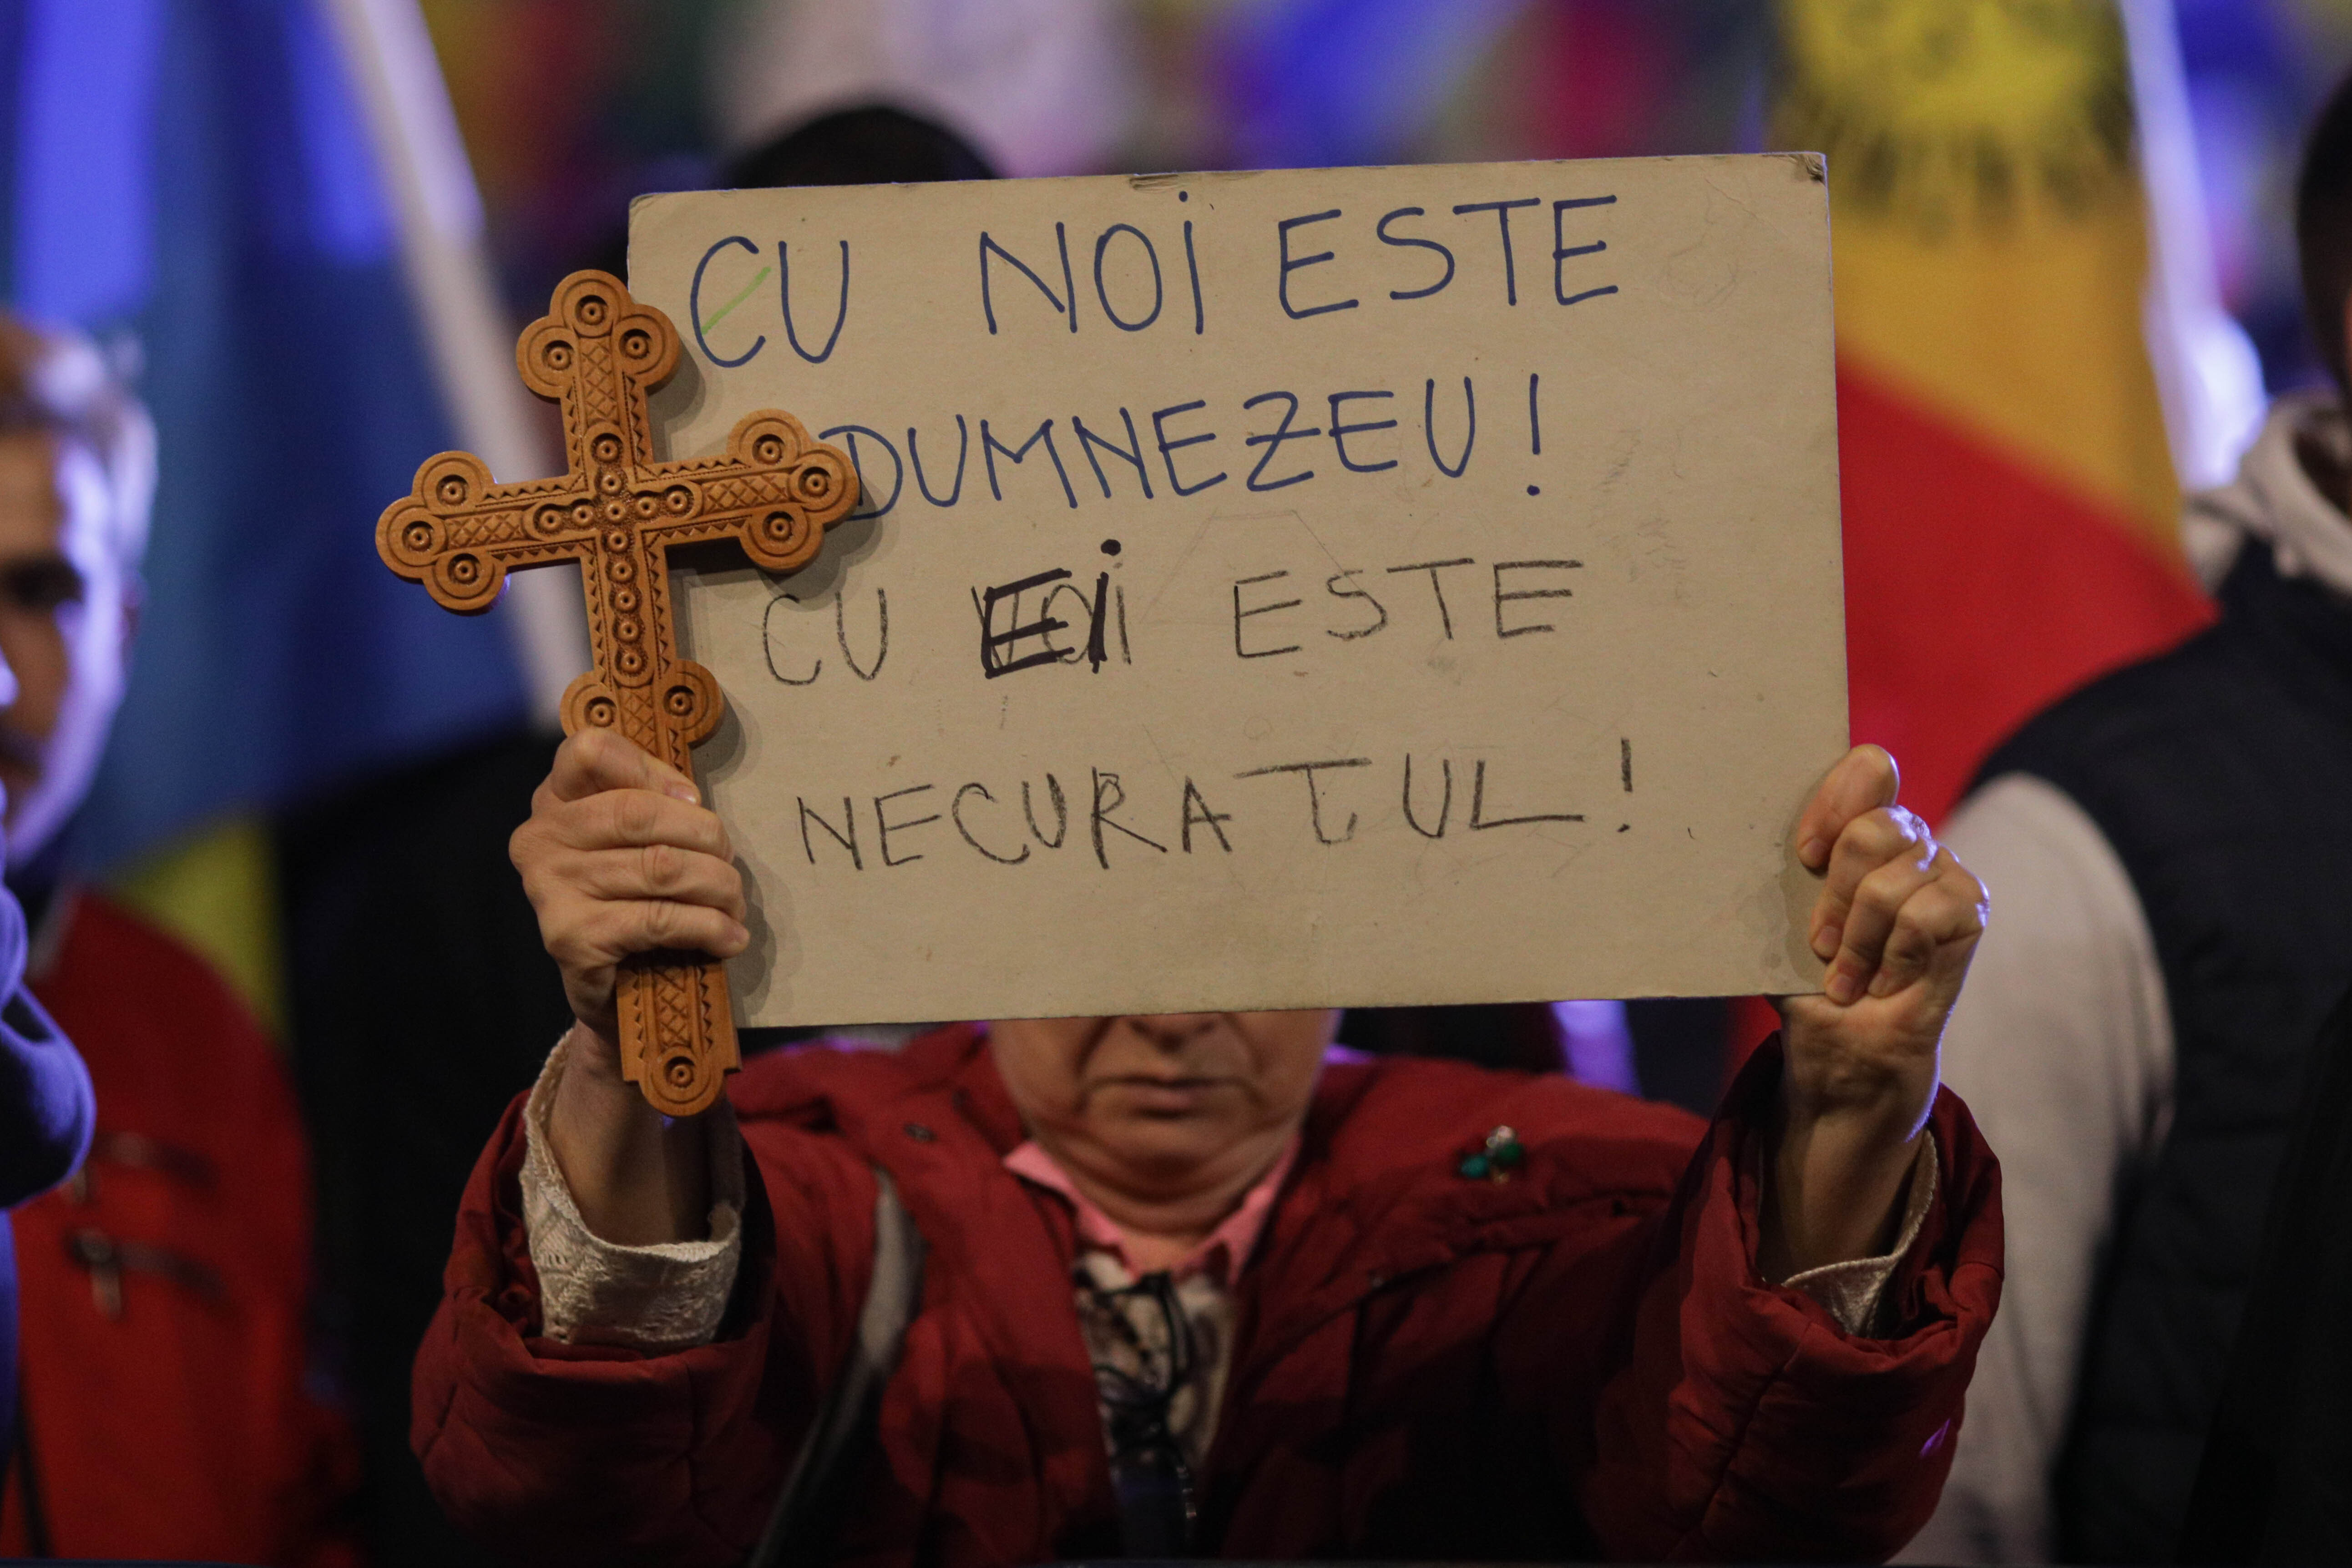 CU NOI ESTE
DUMNEZEU!
CU EI ESTE
NECURATUL!